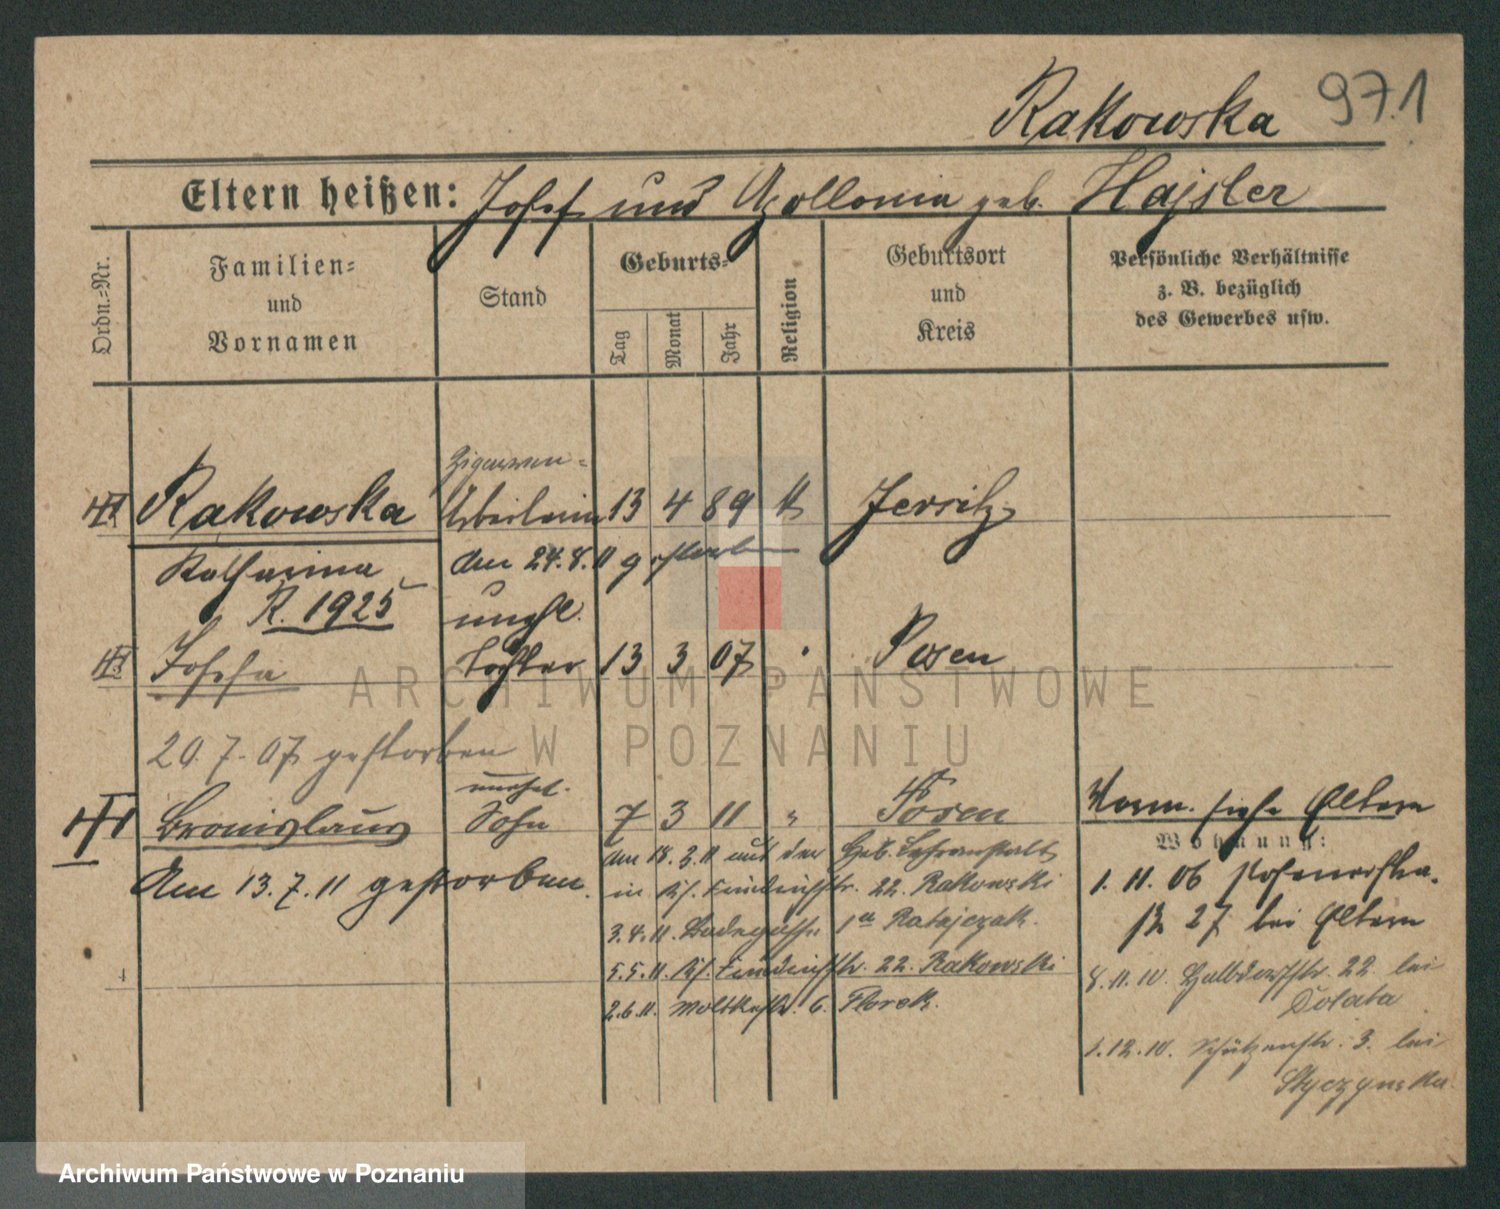 Rakowska 971
Eltern heißen: Josef und Apollonia geb. Hajsler
Ordn.-Nr.
Familien-
und
Vornamen
Stand
Geburts-
Tag
Monat
Jahr
Religion
Geburtsort
und
Kreis
Persönliche Verhältnisse
z. B. bezüglich
des Gewerbes usw.
Zigarren-
Rakowska Arbeiterin 13 4 89 k Jersitz
Katharina den 24.8.11 gestorben
R. 1925 unehl.
Josefa Tochter 13 3 07 Posen
20.7.07 gestorben
unehel.
Bronislaus Sohn 7 3 11 " Posen
Am 13.7.11 gestorben.
am 18.3.11 aus der Heb. Lehranstalt
in Friedrichstr. 22. Rakowski
3.4.11. Badegasse 1a Ratajczak.
5.5.11. Friedrichstr. 22. Rakowski
2.6.11. Moltkestr. 6. Florek.
Vorm. siehe Eltern
Wohnung:
1.11.06
27 bei Eltern
8.11.10. Halbdorfstr. 22 bei
Dolata
1.12.10. Schützenstr. 3. bei
Styczynska
ARCHIWUM PAŃSTWOWE
W POZNANIU
Archiwum Państwowe w Poznaniu